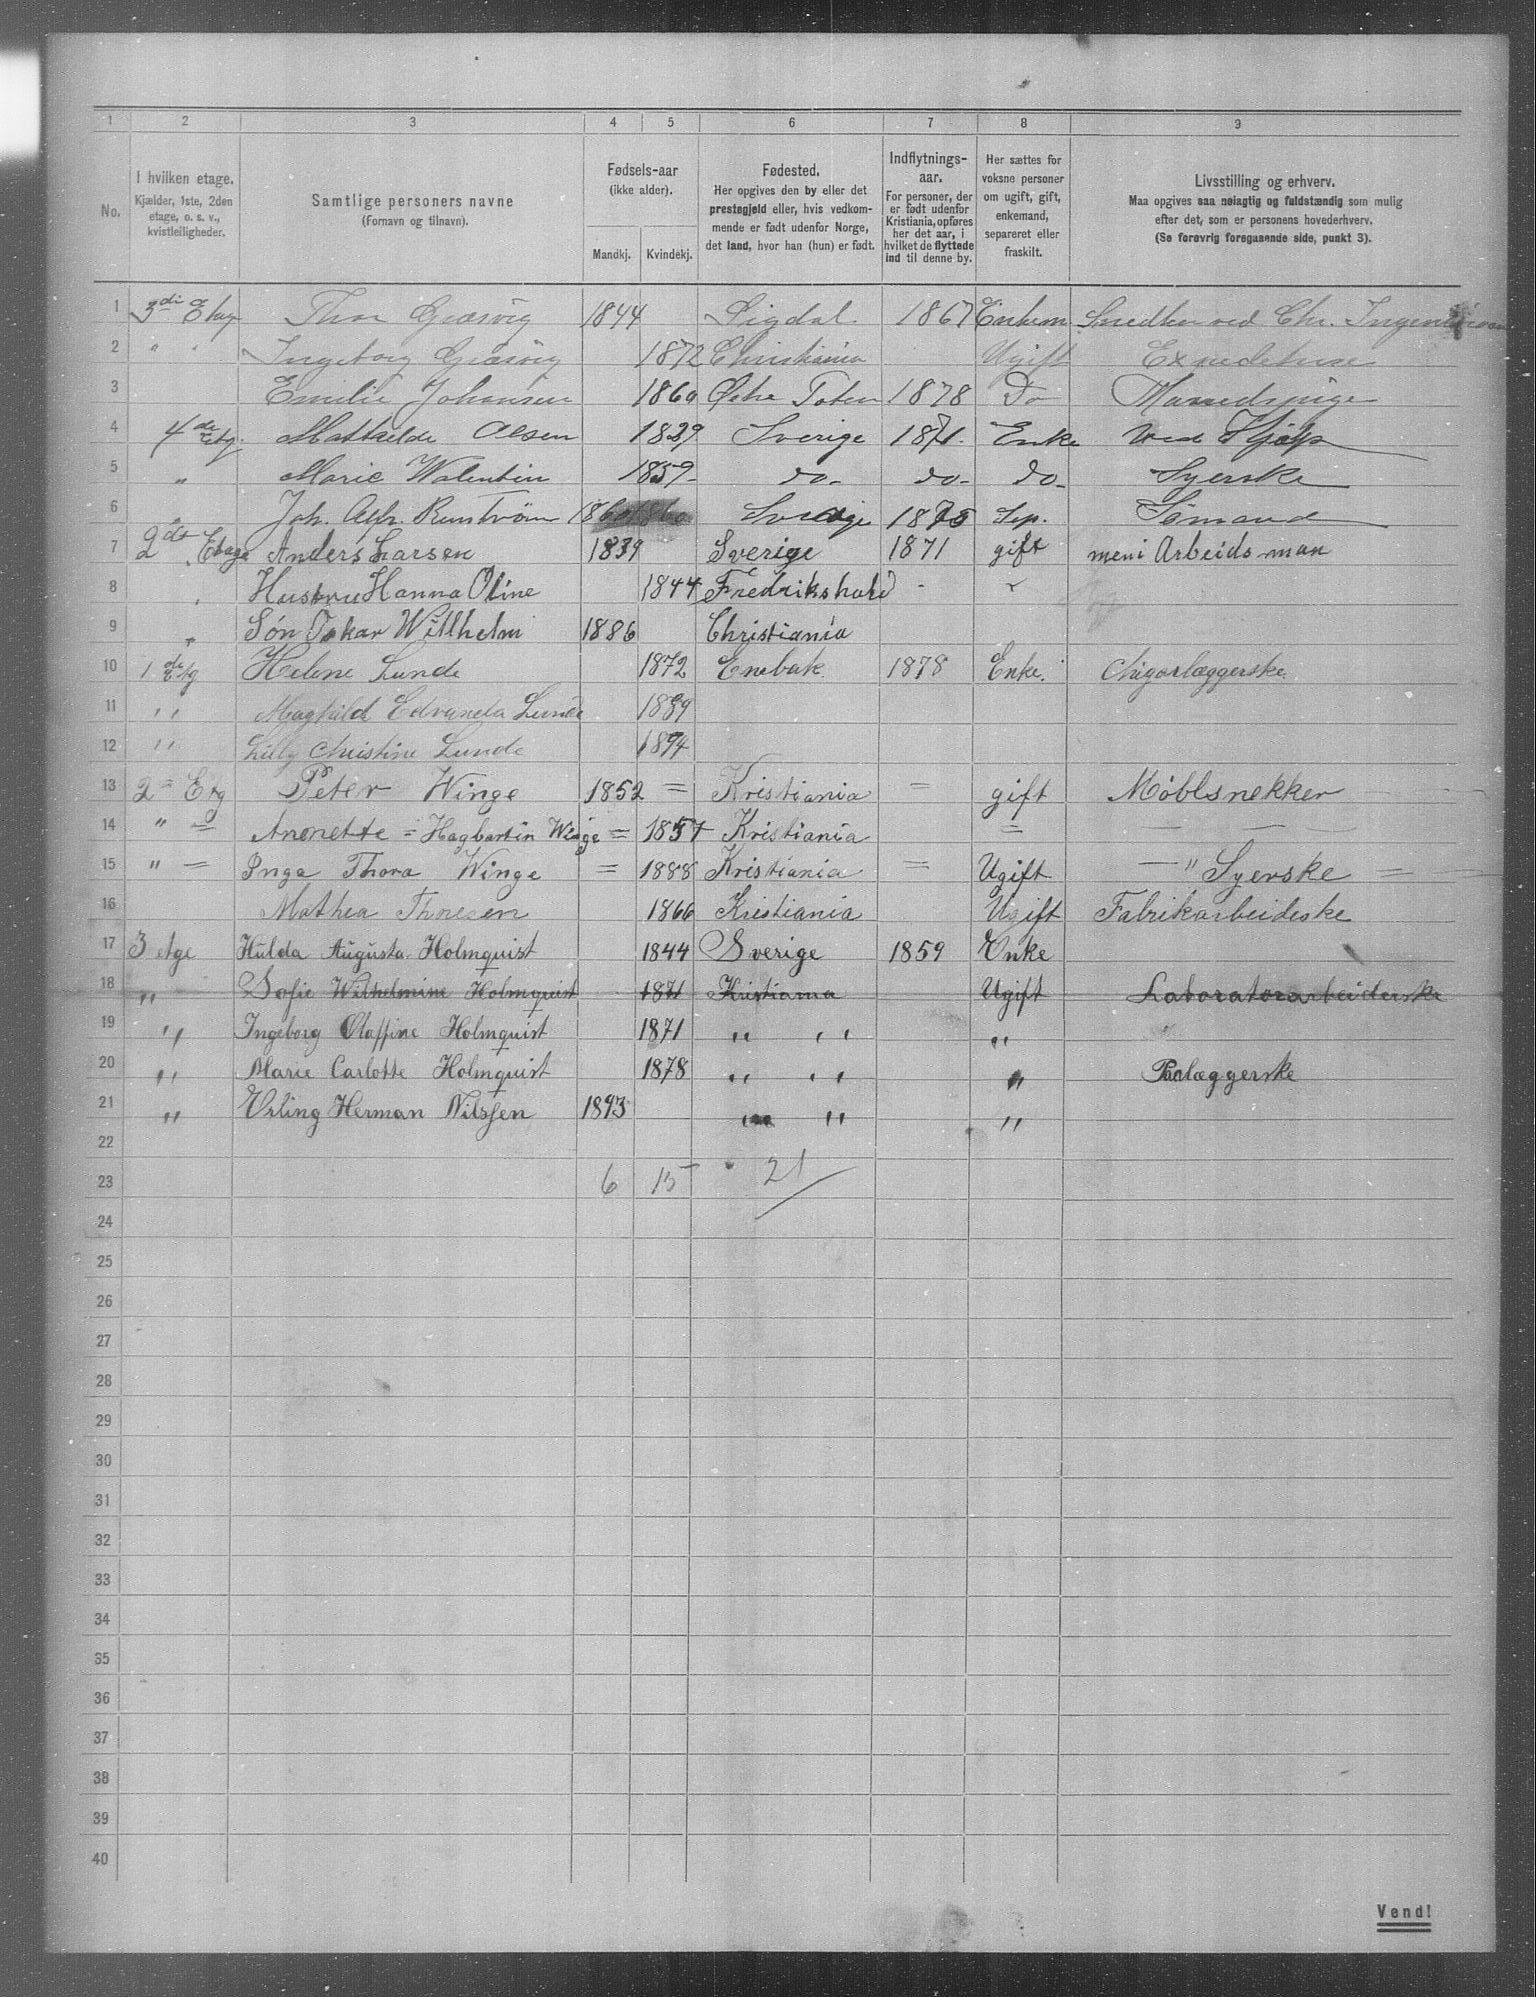 1 2 3 4 5 6 7 8 9
No.
I hvilken etage.
Kjælder, 1ste, 2den
etage, o. s. v.,
kvistleiligheder.
Samtlige personers navne
(Fornavn og tilnavn).
Fødsels-aar
(ikke alder).
Mandkj. Kvindekj.
Fødested.
Her opgives den by eller det
prestegjeld eller, hvis vedkom-
mende er født udenfor Norge,
det land, hvor han (hun) er født.
Indflytnings-
aar.
For personer, der
er født udenfor
Kristiania, opføres
her det aar, i
hvilket de flyttede
ind til denne by.
Her sættes for
voksne personer
om ugift, gift,
enkemand,
separeret eller
fraskilt.
Livsstilling og erhverv.
Maa opgives saa nøiagtig og fuldstændig som mulig
efter det, som er personens hovederhverv.
(Se forøvrig foregaaende side, punkt 3).
1 3di Etag Thor 1844 Sigdal 1867 Enkem ved Chr.
2 " " Ingeborg 1872 Christiania Ugift
3 Emilie Johansen 1860 Østre Toten 1878 Do
4 4de Etg. Mathilde Olsen 1829 Sverige 1871. Enke ved Hjælp
5 " Marie Walentin 1859- do- do- do- Syerske
6 " Joh. Alfr. Runström 1860 1860 Sverige 1875 Sep. Sømand
7 2de Etage Anders Larsen 1839 Sverige 1871 gift meni Arbeidsman
8 Hustru Hanna Oline 1844 Fredrikshald -
9 " Søn Oskar Willhelm 1886 Christiania
10 1de Etg Helene Lunde 1872 Enebak 1878 Enke. Chigarlæggerske
11 " Maghild Lunde
12 " Lilly Christine Lunde 1894
13 2= Etg Peter Winge 1852 = Kristiania = gift Møblsnekker
14 " = Anenette = Hagbartin Winge = 1857 Kristiania = — — —
15 " — Inga Thora Winge = 1888 Kristiania = Ugift — " Syerske =
16 Mathea Thoresen 1866 Kristiania Ugift Fabrikarbeideske
17 3 Age Hulda Augusta Holmquist 1844 Sverige 1859 Enke
18 " Sofie Wilhelmine Holmquist 1871 Kristiania Ugift Laboratorarbeiderske
19 " Ingeborg Olaffine Holmquist 1871 " " "
20 " Marie Carlotte Holmquist 1878 " " " Paalæggerske
21 " Erling Herman Nilssen 1893 " " "
22
23 6 15 21
24
25
26
27
28
29
30
31
32
33
34
35
36
37
38
39
40
Vend!